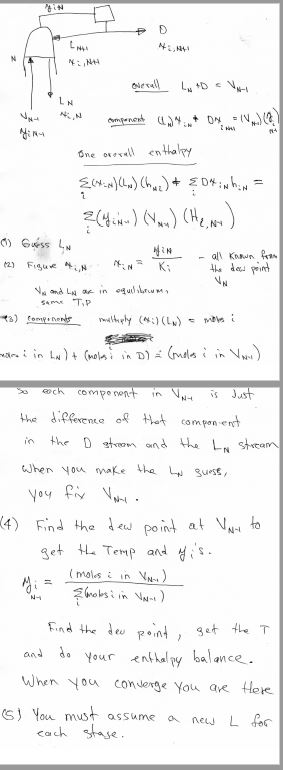 yiN
D
xi,N+1
N
LN+1
xi,N+1
LN
xi,N
VN-1
yiN-1
overall LN + D = VN-1
component (LN)xi,N + Dxi,N+1 = (VN-1)(yi N-1)
One overall enthalpy
Σi(xi,N)(LN)(hNi) + Σi Dxi,N hi,N =
Σi(yiN-1)(VN-1)(Hi,N-1)
(1) Guess LN
(2) Figure xi,N xi,N = yiN / Ki - all known from the dew point VN
VN and LN are in equilibrium,
same T,P
(3) components multiply (xi)(LN) = moles i
(moles i in LN) + (moles i in D) = (moles i in VN-1)
So each component in VN-1 is Just
the difference of that component
in the D stream and the LN stream
When you make the LN guess,
you fix VN-1.
(4) Find the dew point at VN-1 to
get the Temp and yi's.
yi N-1 = (moles i in VN-1) / Σi(moles i in VN-1)
Find the dew point, get the T
and do your enthalpy balance.
When you converge you are there
(5) You must assume a new L for
each stage.